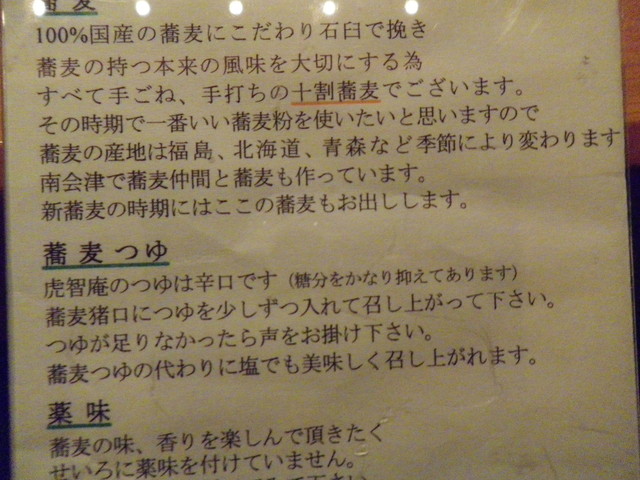 蕎麦
100%国産の蕎麦にこだわり石臼で挽き
蕎麦の持つ本来の風味を大切にする為
すべて手ごね、手打ちの十割蕎麦でございます。
その時期で一番いい蕎麦粉を使いたいと思いますので
蕎麦の産地は福島、北海道、青森など季節により変わります
南会津で蕎麦仲間と蕎麦も作っています。
新蕎麦の時期にはここの蕎麦もお出しします。
蕎麦つゆ
虎智庵のつゆは辛口です（糖分をかなり抑えてあります）
蕎麦猪口につゆを少しずつ入れて召し上がって下さい。
つゆが足りなかったら声をお掛け下さい。
蕎麦つゆの代わりに塩でも美味しく召し上がれます。
薬味
蕎麦の味、香りを楽しんで頂きたく
せいろに薬味を付けていません。